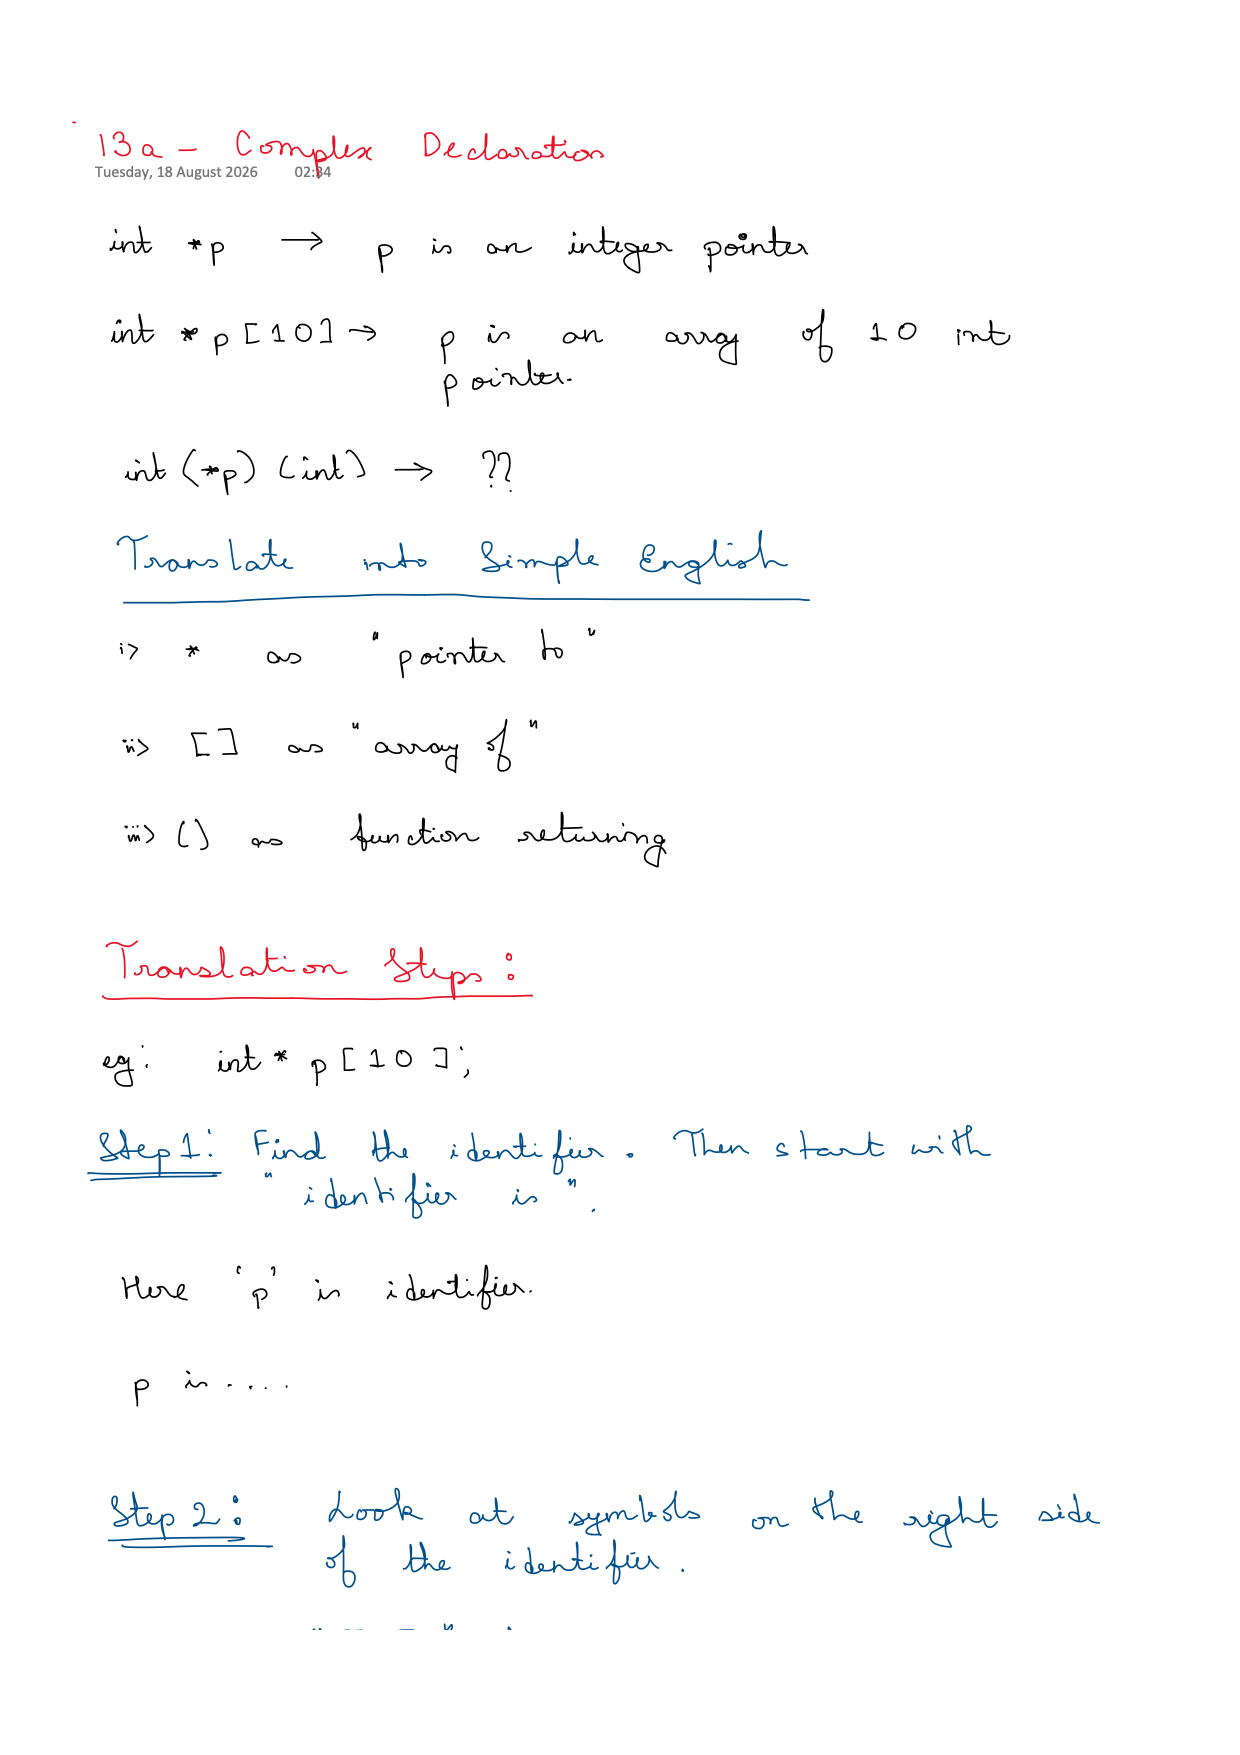 13a - Complex Declaration
Tuesday, 18 August 2026 02:34
int *p → p is an integer pointer
int *p [10] → p is an array of 10 int
pointer.
int (*p) (int) → ??
Translate into Simple English
i> * as "pointer to"
ii> [] as "array of"
iii> () as function returning
Translation Steps :
eg: int * p [10];
Step 1: Find the identifier. Then start with
"identifier is".
Here 'p' is identifier.
p is ....
Step 2: Look at symbols on the right side
of the identifier.